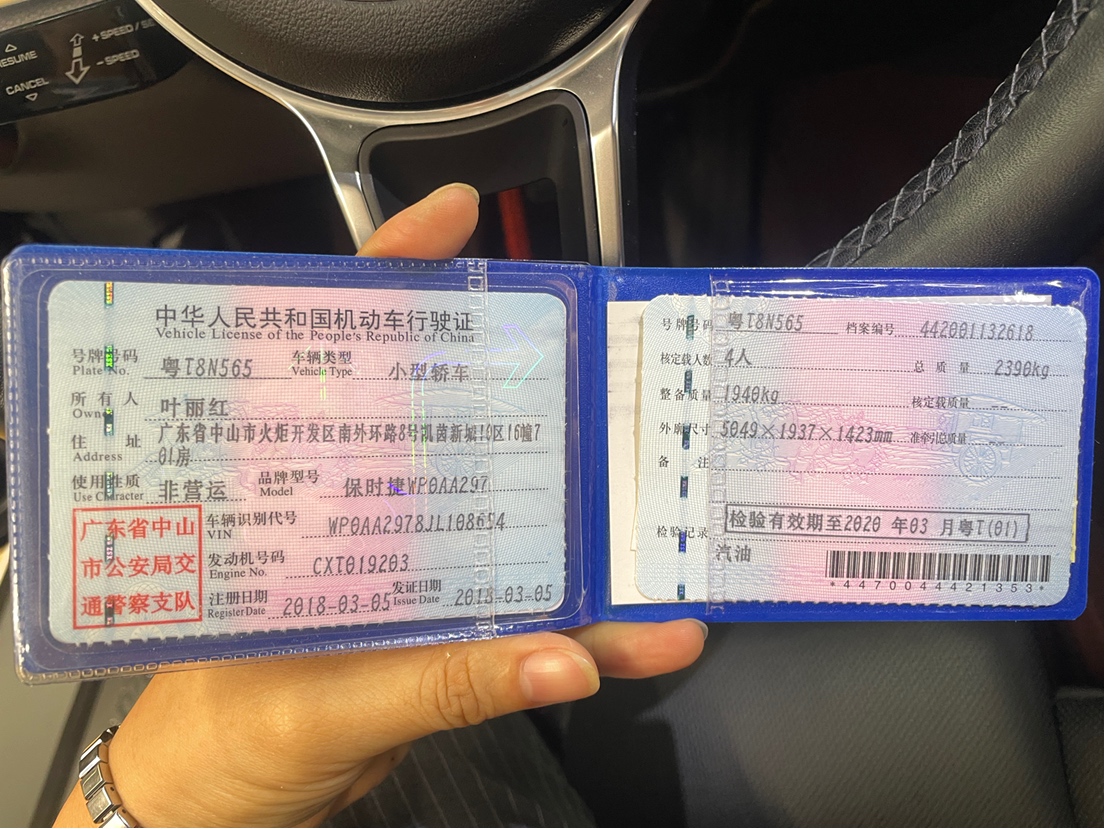 + SPEED / SE
RESUME
- SPEED
CANCEL
中华人民共和国机动车行驶证
Vehicle License of the People's Republic of China
号牌号码 粤T8N565 车辆类型 小型轿车
Plate No. Vehicle Type
所有人 叶丽红
Owner
住址 广东省中山市火炬开发区南外环路8号凯茵新城10区16幢7
Address 01房
使用性质 非营运 品牌型号 保时捷WP0AA297
Use Character Model
广东省中山
市公安局交
通警察支队
车辆识别代号 WP0AA2978JL108654
VIN
发动机号码 CXT019203
Engine No.
注册日期 2018-03-05 发证日期 2018-03-05
Register Date Issue Date
号牌号码 粤T8N565 档案编号 442001132618
核定载人数 4人 总质量 2390kg
整备质量 1940kg 核定载质量 --
外廓尺寸 5049×1937×1423mm 准牵引总质量 --
备注
检验记录 检验有效期至2020年03月粤T(01)
汽油
*4470044421353*